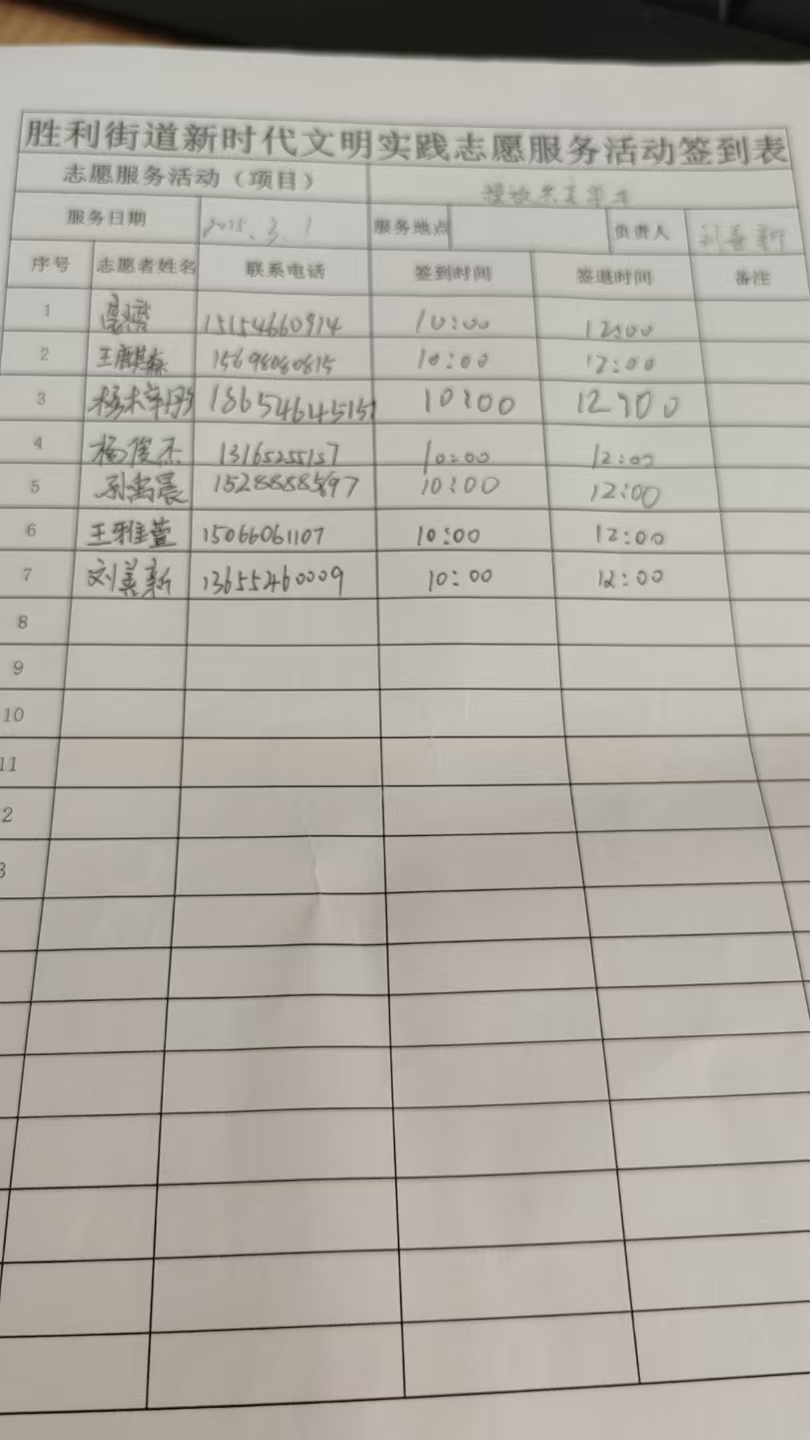 胜利街道新时代文明实践志愿服务活动签到表
志愿服务活动（项目） 摆放共享单车
服务日期 2025.3.1 服务地点 负责人 刘善新
序号 志愿者姓名 联系电话 签到时间 签退时间 备注
1 15154660914 10:00 12:00
2 王麒森 15698080815 10:00 12:00
3 18654645151 10:00 12:00
4 杨俊杰 13165255157 10:00 12:00
5 10:00 12:00
6 王雅萱 15066061107 10:00 12:00
7 刘善新 13655460009 10:00 12:00
8
9
10
11
2
3